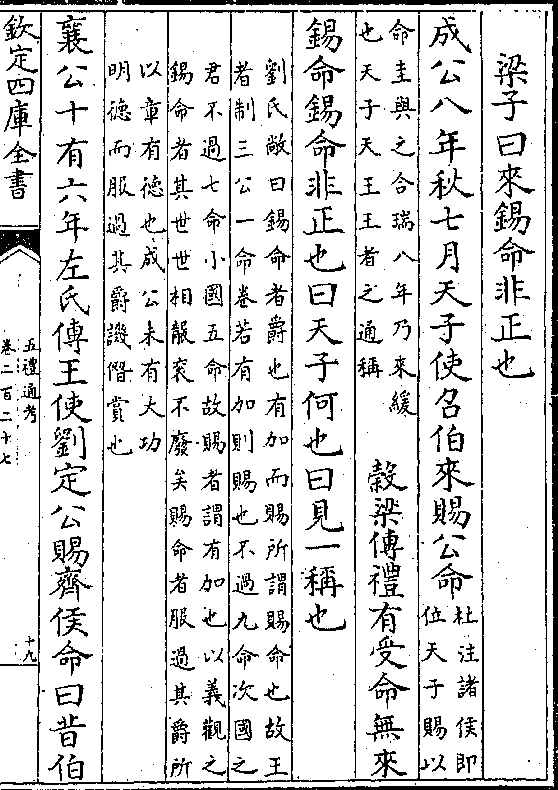 梁子曰來錫命非正也
成公八年秋七月天子使召伯來賜公命
杜注諸侯即
位天子賜以
命圭與之合瑞八年乃來緩
也天子天王王者之通稱
榖梁傳禮有受命無來
錫命錫命非正也曰天子何也曰見一稱也
劉氏敞曰錫命者爵也有加而賜所謂賜命也故王
者制三公一命卷若有加則賜也不過九命次國之
君不過七命小國五命故賜者謂有加也以義觀之
錫命者其世世相衮不廢矣賜命者服過其爵所
以章有德也成公未有大功
明德而服過其爵譏僭賞也
襄公十有六年左氏傳王使劉定公賜齊侯命曰昔伯
欽定四庫全書
五禮通考
卷二百二十七
十九